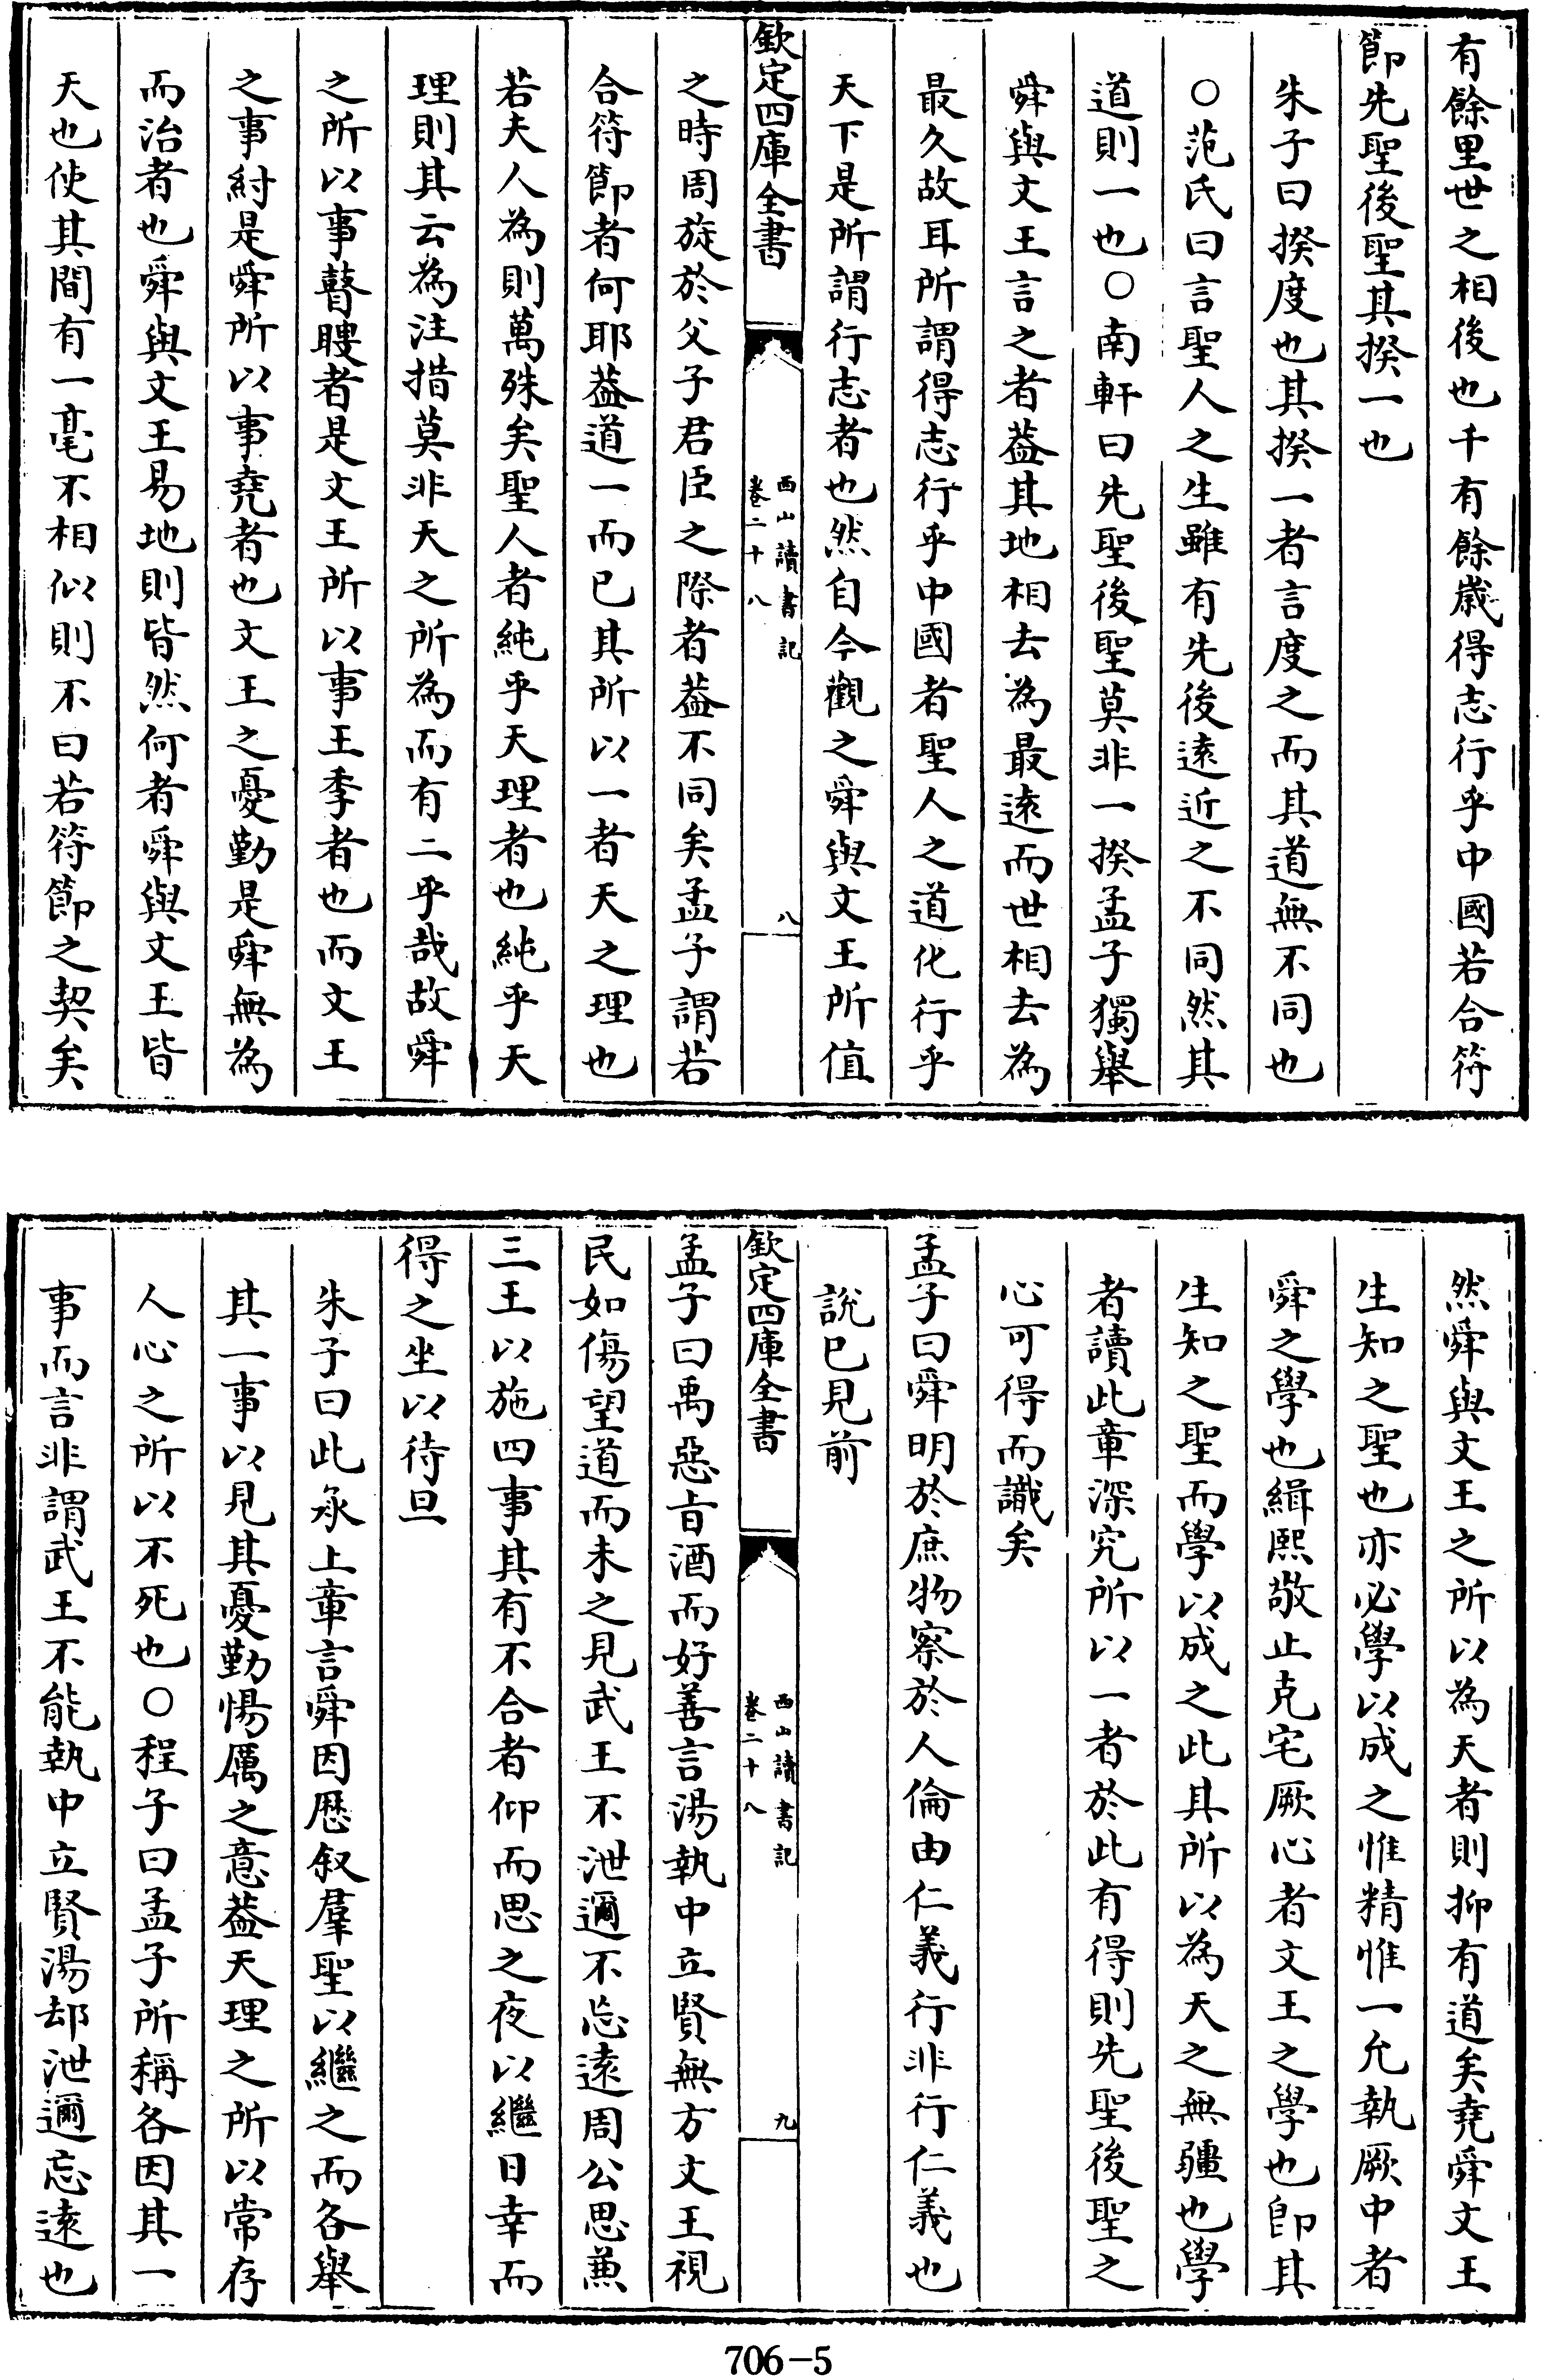 有餘里世之相後也千有餘歲得志行乎中國若合符
節先聖後聖其揆一也
朱子曰揆度也其揆一者言度之而其道無不同也
○范氏曰言聖人之生雖有先後逺近之不同然其
道則一也○南軒曰先聖後聖莫非一揆孟子獨舉
舜與文王言之者葢其地相去為最逺而世相去為
最久故耳所謂得志行乎中國者聖人之道化行乎
天下是所謂行志者也然自今觀之舜與文王所值
欽定四庫全書
西山讀書記
卷二十八
八
之時周旋於父子君臣之際者葢不同矣孟子謂若
合符節者何耶葢道一而已其所以一者天之理也
若夫人為則萬殊矣聖人者純乎天理者也純乎天
理則其云為注措莫非天之所為而有二乎哉故舜
之所以事瞽瞍者是文王所以事王季者也而文王
之事紂是舜所以事堯者也文王之憂勤是舜無為
而治者也舜與文王易地則皆然何者舜與文王皆
天也使其間有一毫不相似則不曰若符節之契矣
然舜與文王之所以為天者則抑有道矣堯舜文王
生知之聖也亦必學以成之惟精惟一允執厥中者
舜之學也緝熙敬止克宅厥心者文王之學也即其
生知之聖而學以成之此其所以為天之無疆也學
者讀此章深究所以一者於此有得則先聖後聖之
心可得而識矣
孟子曰舜明於庶物察於人倫由仁義行非行仁義也
說已見前
欽定四庫全書
西山讀書記
卷二十八
九
孟子曰禹惡旨酒而好善言湯執中立賢無方文王視
民如傷望道而未之見武王不泄邇不忘逺周公思兼
三王以施四事其有不合者仰而思之夜以繼日幸而
得之坐以待旦
朱子曰此承上章言舜因歴叙羣聖以繼之而各舉
其一事以見其憂勤惕厲之意葢天理之所以常存
人心之所以不死也○程子曰孟子所稱各因其一
事而言非謂武王不能執中立賢湯却泄邇忘逺也
706-5